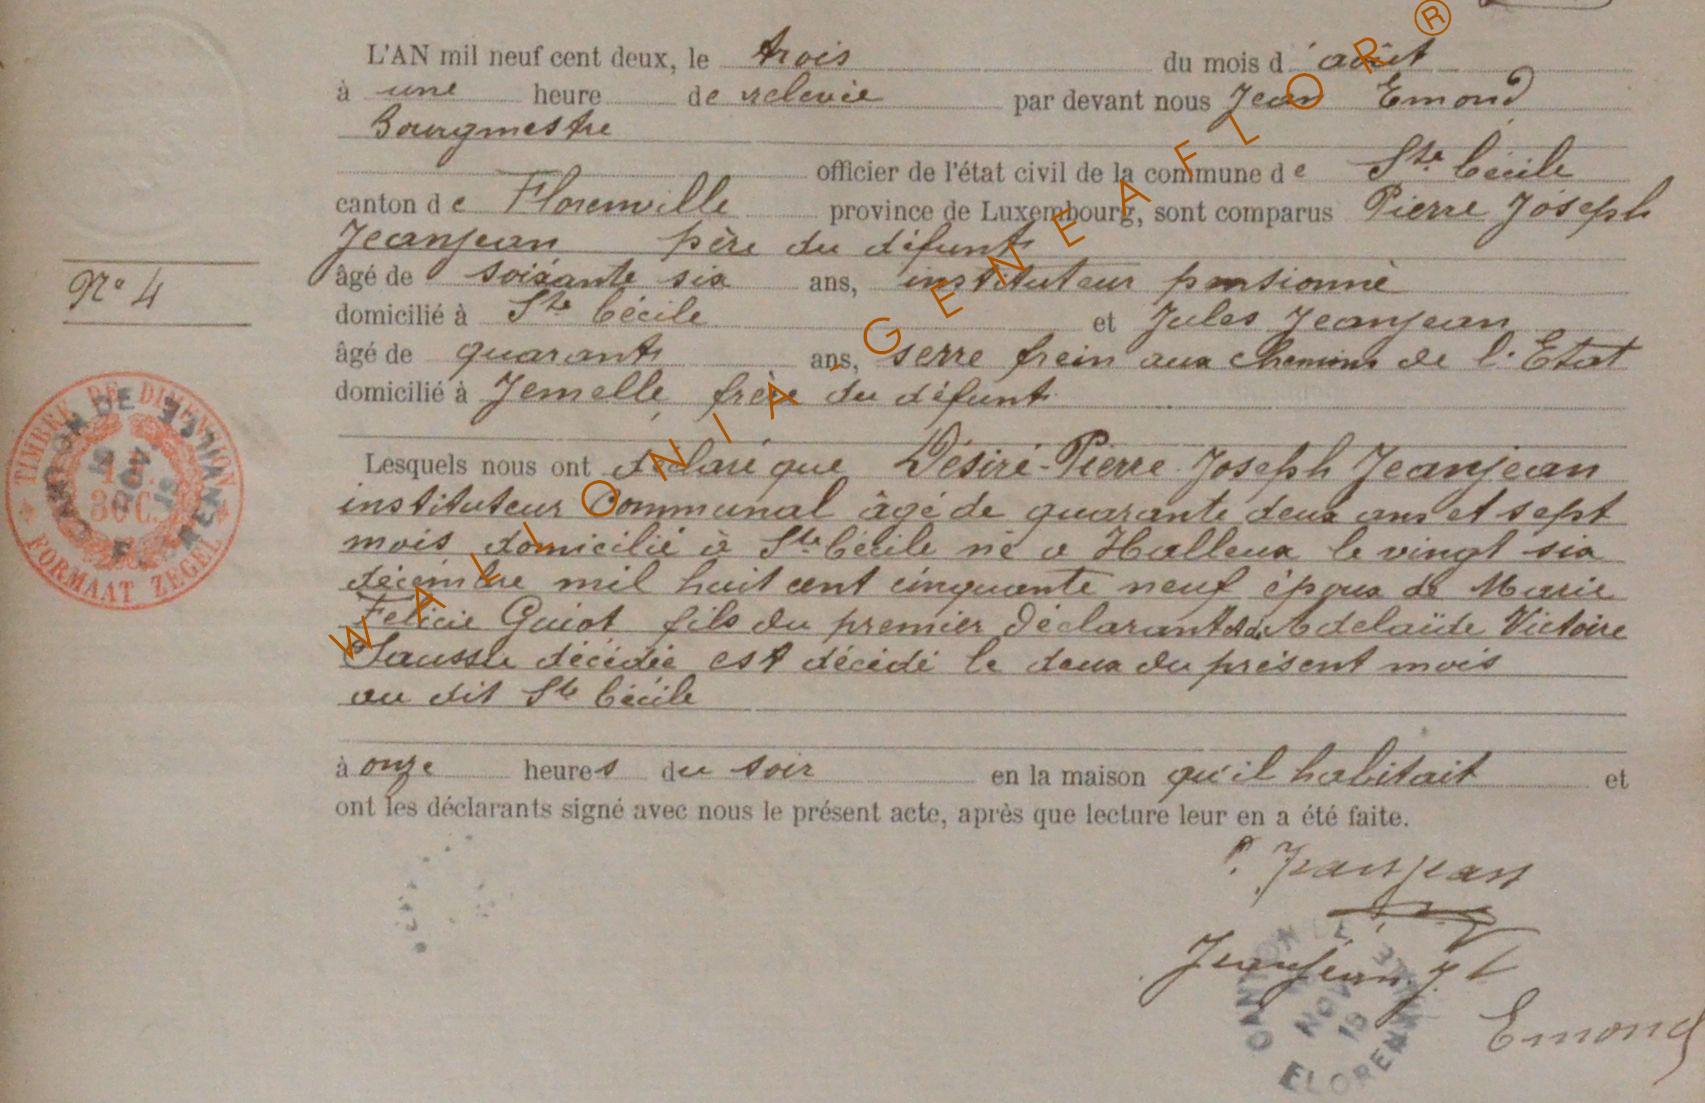 L'AN mil neuf cent deux, le trois du mois d'août
à une heure de relevée par devant nous Jean Emond
Bourgmestre
officier de l'état civil de la commune de Ste Cécile
canton de Florenville province de Luxembourg, sont comparus Pierre Joseph
Jeanjean père du défunt
âgé de soixante six ans, instituteur pensionné
N° 4
domicilié à Ste Cécile et Jules Jeanjean
âgé de quarante ans, serre frein aux chemins de l'Etat
domicilié à Jemelle, frère du défunt
Lesquels nous ont déclaré que Désiré-Pierre-Joseph Jeanjean
instituteur communal âgé de quarante deux ans et sept
mois domicilié à Ste Cécile né à Halleux le vingt six
décembre mil huit cent cinquante neuf époux de Marie
Felicie Guiot fils du premier déclarant et de Adelaïde Victoire
Sausse décédée est décédé le deux du présent mois
au dit Ste Cécile
à onze heures du soir en la maison qu'il habitait et
ont les déclarants signé avec nous le présent acte, après que lecture leur en a été faite.
P. Jeanjean
Jeanjean J.
Emond
TIMBRE DE DIMENSION
30 C.
FORMAAT ZEGEL
CANTON DE FLORENVILLE
WALLONIA - GENEAFLOR®